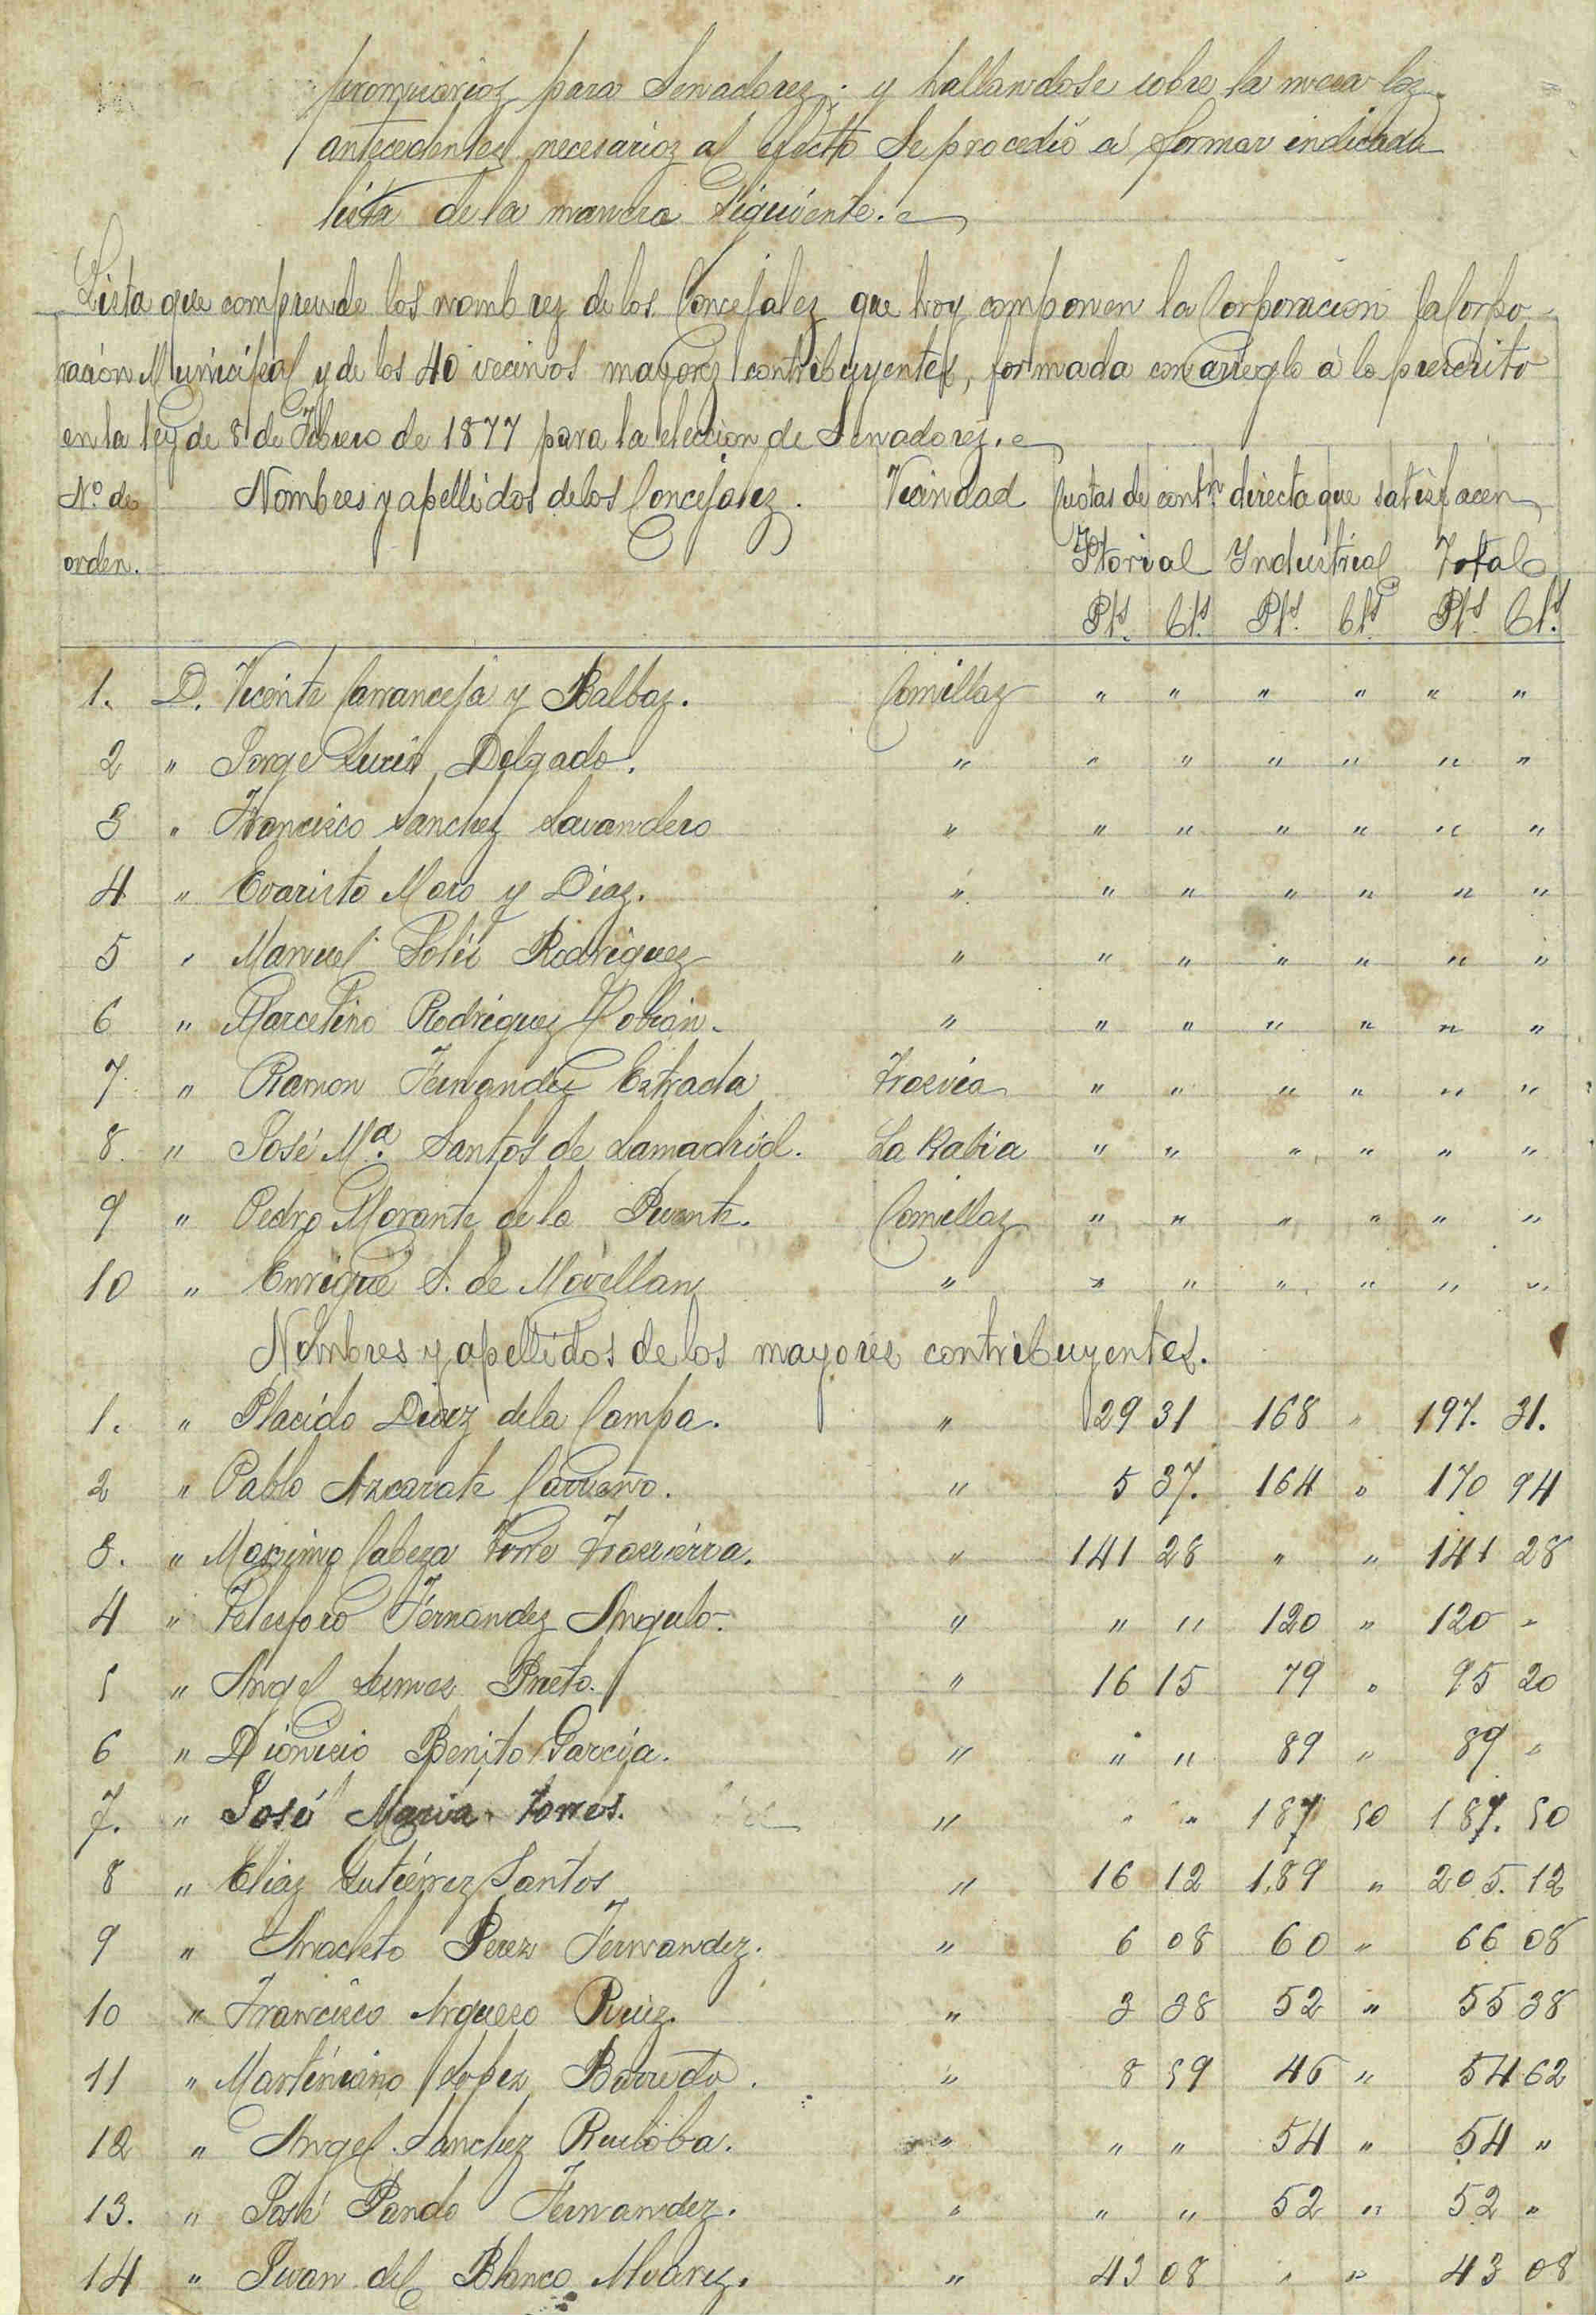 promisarios para Senadores; y hallandose sobre la mesa los
antecedentes necesarios al efecto se procedió á formar indicada
lista de la manera siguiente.
Lista que comprende los nombres de los Concejales que hoy componen la Corporacion Corpo-
ración Municipal y de los 40 vecinos mayores contribuyentes, formada con arreglo á lo prescrito
en la ley de 8 de Febrero de 1877 para la eleccion de Senadores.
Nº de Nombres y apellidos de los Concejales. Vecindad Cuotas de contn directa que satisfacen
orden. Ttorial Industrial Total
Pts. Cts. Pts. Cts. Pts. Cts.
1. D. Vicente Carranceja y Balbas. Comillas " " " " " "
2 " Jorge Delgado. " " " " " " "
3 " Francisco Sanchez Lavandero " " " " " " "
4 " Evaristo Moro y Diaz. " " " " " " "
5 " Manuel Solís Rodriguez " " " " " " "
6 " Marcelino Rodriguez Cobian. " " " " " " "
7 " Ramon Fernandez Estrada Trasvia " " " " " "
8. " José Mª. Santos de Lamadrid. La Rabia " " " " " "
9 " Pedro Morante de la Puente. Comillas " " " " " "
10 " Enrique S. de Movellan " " " " " " "
Nombres y apellidos de los mayores contribuyentes.
1. " Placido Diaz de la Campa. " 29 31 168 " 197. 31.
2 " Pablo Azcarate Carreño. " 5 37. 164 " 170 94
3. " Maximo Cabeza Torre Trasierra. " 141 28 " " 141 28
4 " Telesforo Fernandez Angulo. " " " 120 " 120 "
5 " Angel Prieto. " 16 15 79 " 95 20
6 " Dionisio Benito Garcia. " " " 89 " 89 "
7. " José Maria Torres. " " " 187 50 187. 50
8 " Elias Gutiérrez Santos " 16 12 189 " 205. 12
9 " Anacleto Perez Fernandez. " 6 08 60 " 66 08
10 " Francisco Argueso Ruiz. " 3 38 52 " 55 38
11 " Martiniano Lopez Barreda. " 8 59 46 " 54 62
12 " Angel Sanchez Ruiloba. " " " 54 " 54 "
13. " José Pando Fernandez. " " " 52 " 52 "
14 " Juan del Blanco Alvarez. " 43 08 " " 43 08